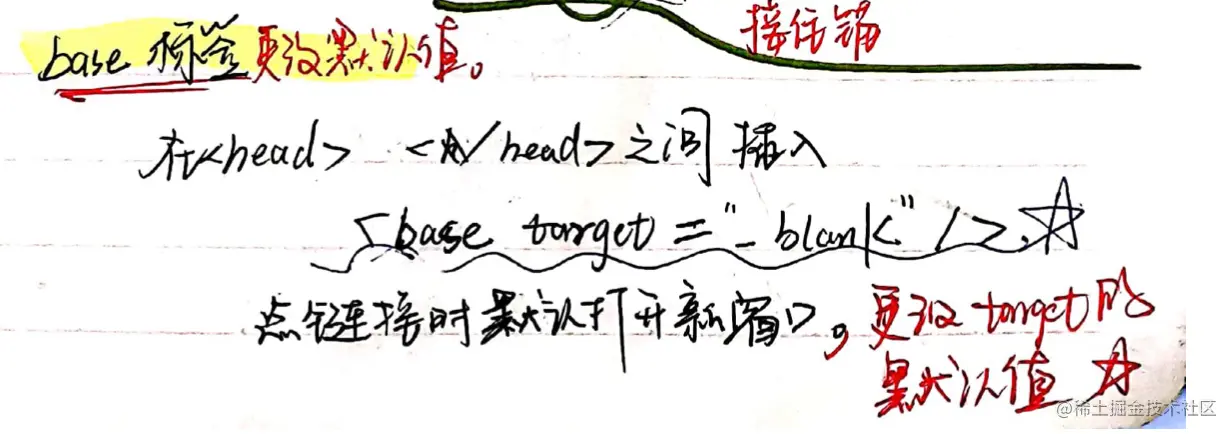 接住锚
base 标签更改默认值。
在<head> </head>之间插入
<base target="_blank" />. ☆
点链接时默认打开新窗口。更改 target 的
默认值 ☆
@稀土掘金技术社区